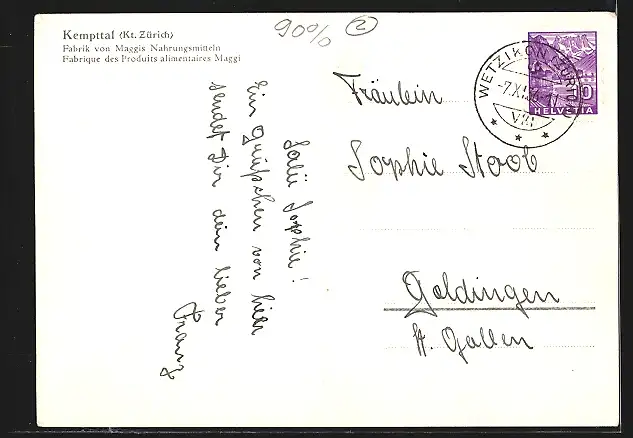 Kempttal (Kt. Zürich)
Fabrik von Maggis Nahrungsmitteln
Fabrique des Produits alimentaires Maggi
90% 2
WETZIKON
-7.XI.
VIII
10
HELVETIA
Fräulein
Sophie Stoob
Goldingen
St. Gallen
Salü Sophie!
Ein Grüßchen von hier
sendet Dir dein lieber
Franz